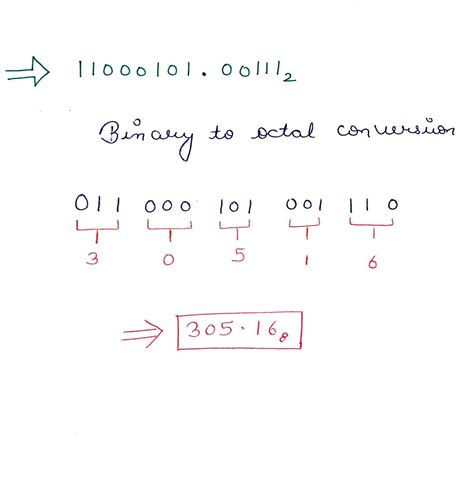 ⇒ 11000101.00111₂
Binary to octal conversion
011 000 101 001 110
3 0 5 1 6
⇒ 305.16₈